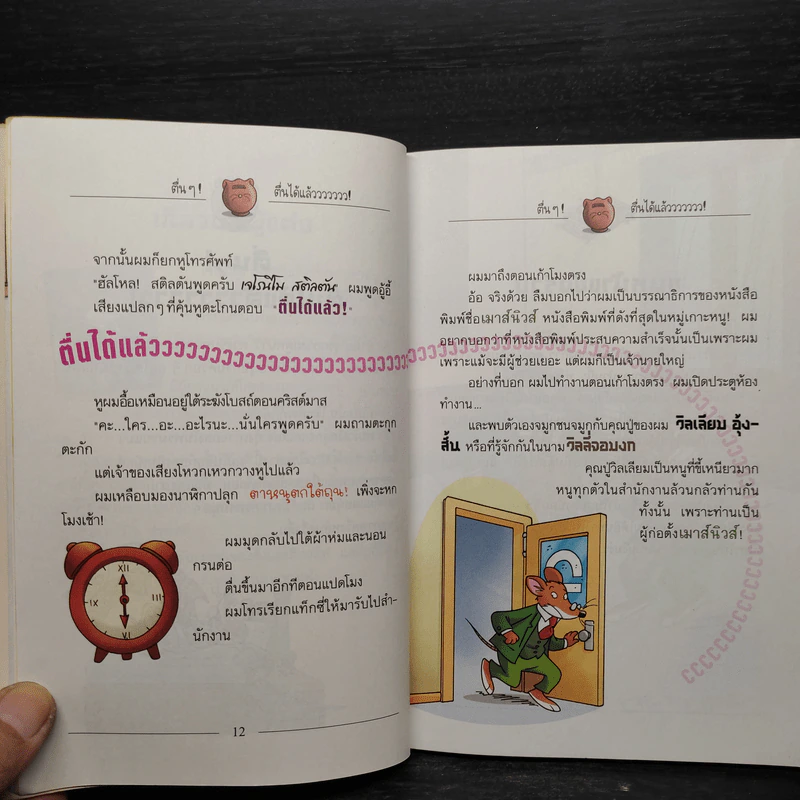 ตื่นๆ! ตื่นได้แล้วววววว!
จากนั้นผมก็ยกหูโทรศัพท์
"ฮัลโหล! สติลตันพูดครับ เจโรนิโม สติลตัน" ผมพูดอู้อี้
เสียงแปลกๆ ที่คุ้นหูตะโกนตอบ "ตื่นได้แล้ว!"
ตื่นได้แล้ววววววววววววววววววววววววววววววววววววววววววววววววววววววว
หูผมอื้อเหมือนอยู่ใต้ระฆังโบสถ์ตอนคริสต์มาส
"คะ...ใคร...อะ...อะไรนะ...นั่นใครพูดครับ" ผมถามตะกุก
ตะกัก
แต่เจ้าของเสียงโหวกเหวกวางหูไปแล้ว
ผมเหลือบมองนาฬิกาปลุก ตาหนูตกใต้ถุน! เพิ่งจะหก
โมงเช้า!
ผมมุดกลับไปใต้ผ้าห่มและนอน
กรนต่อ
ตื่นขึ้นมาอีกทีตอนแปดโมง
ผมโทรเรียกแท็กซี่ให้มารับไปสำ-
นักงาน
XII
III
VI
IX
12
ตื่นๆ! ตื่นได้แล้วววววว!
ผมมาถึงตอนเก้าโมงตรง
อ้อ จริงด้วย ลืมบอกไปว่าผมเป็นบรรณาธิการของหนังสือ
พิมพ์ชื่อเมาส์นิวส์ หนังสือพิมพ์ที่ดังที่สุดในหมู่เกาะหนู! ผม
อยากบอกว่าที่หนังสือพิมพ์ประสบความสำเร็จนั้นเป็นเพราะผม
เพราะแม้จะมีผู้ช่วยเยอะ แต่ผมก็เป็นเจ้านายใหญ่
อย่างที่บอก ผมไปทำงานตอนเก้าโมงตรง ผมเปิดประตูห้อง
ทำงาน...
และพบตัวเองจมูกชนจมูกกับคุณปู่ของผม วิลเลียม อุ้ง-
สั้น หรือที่รู้จักกันในนามวิลลี่จอมงก
คุณปู่วิลเลียมเป็นหนูที่ขี้เหนียวมาก
หนูทุกตัวในสำนักงานล้วนกลัวท่านกัน
ทั้งนั้น เพราะท่านเป็น
ผู้ก่อตั้งเมาส์นิวส์!